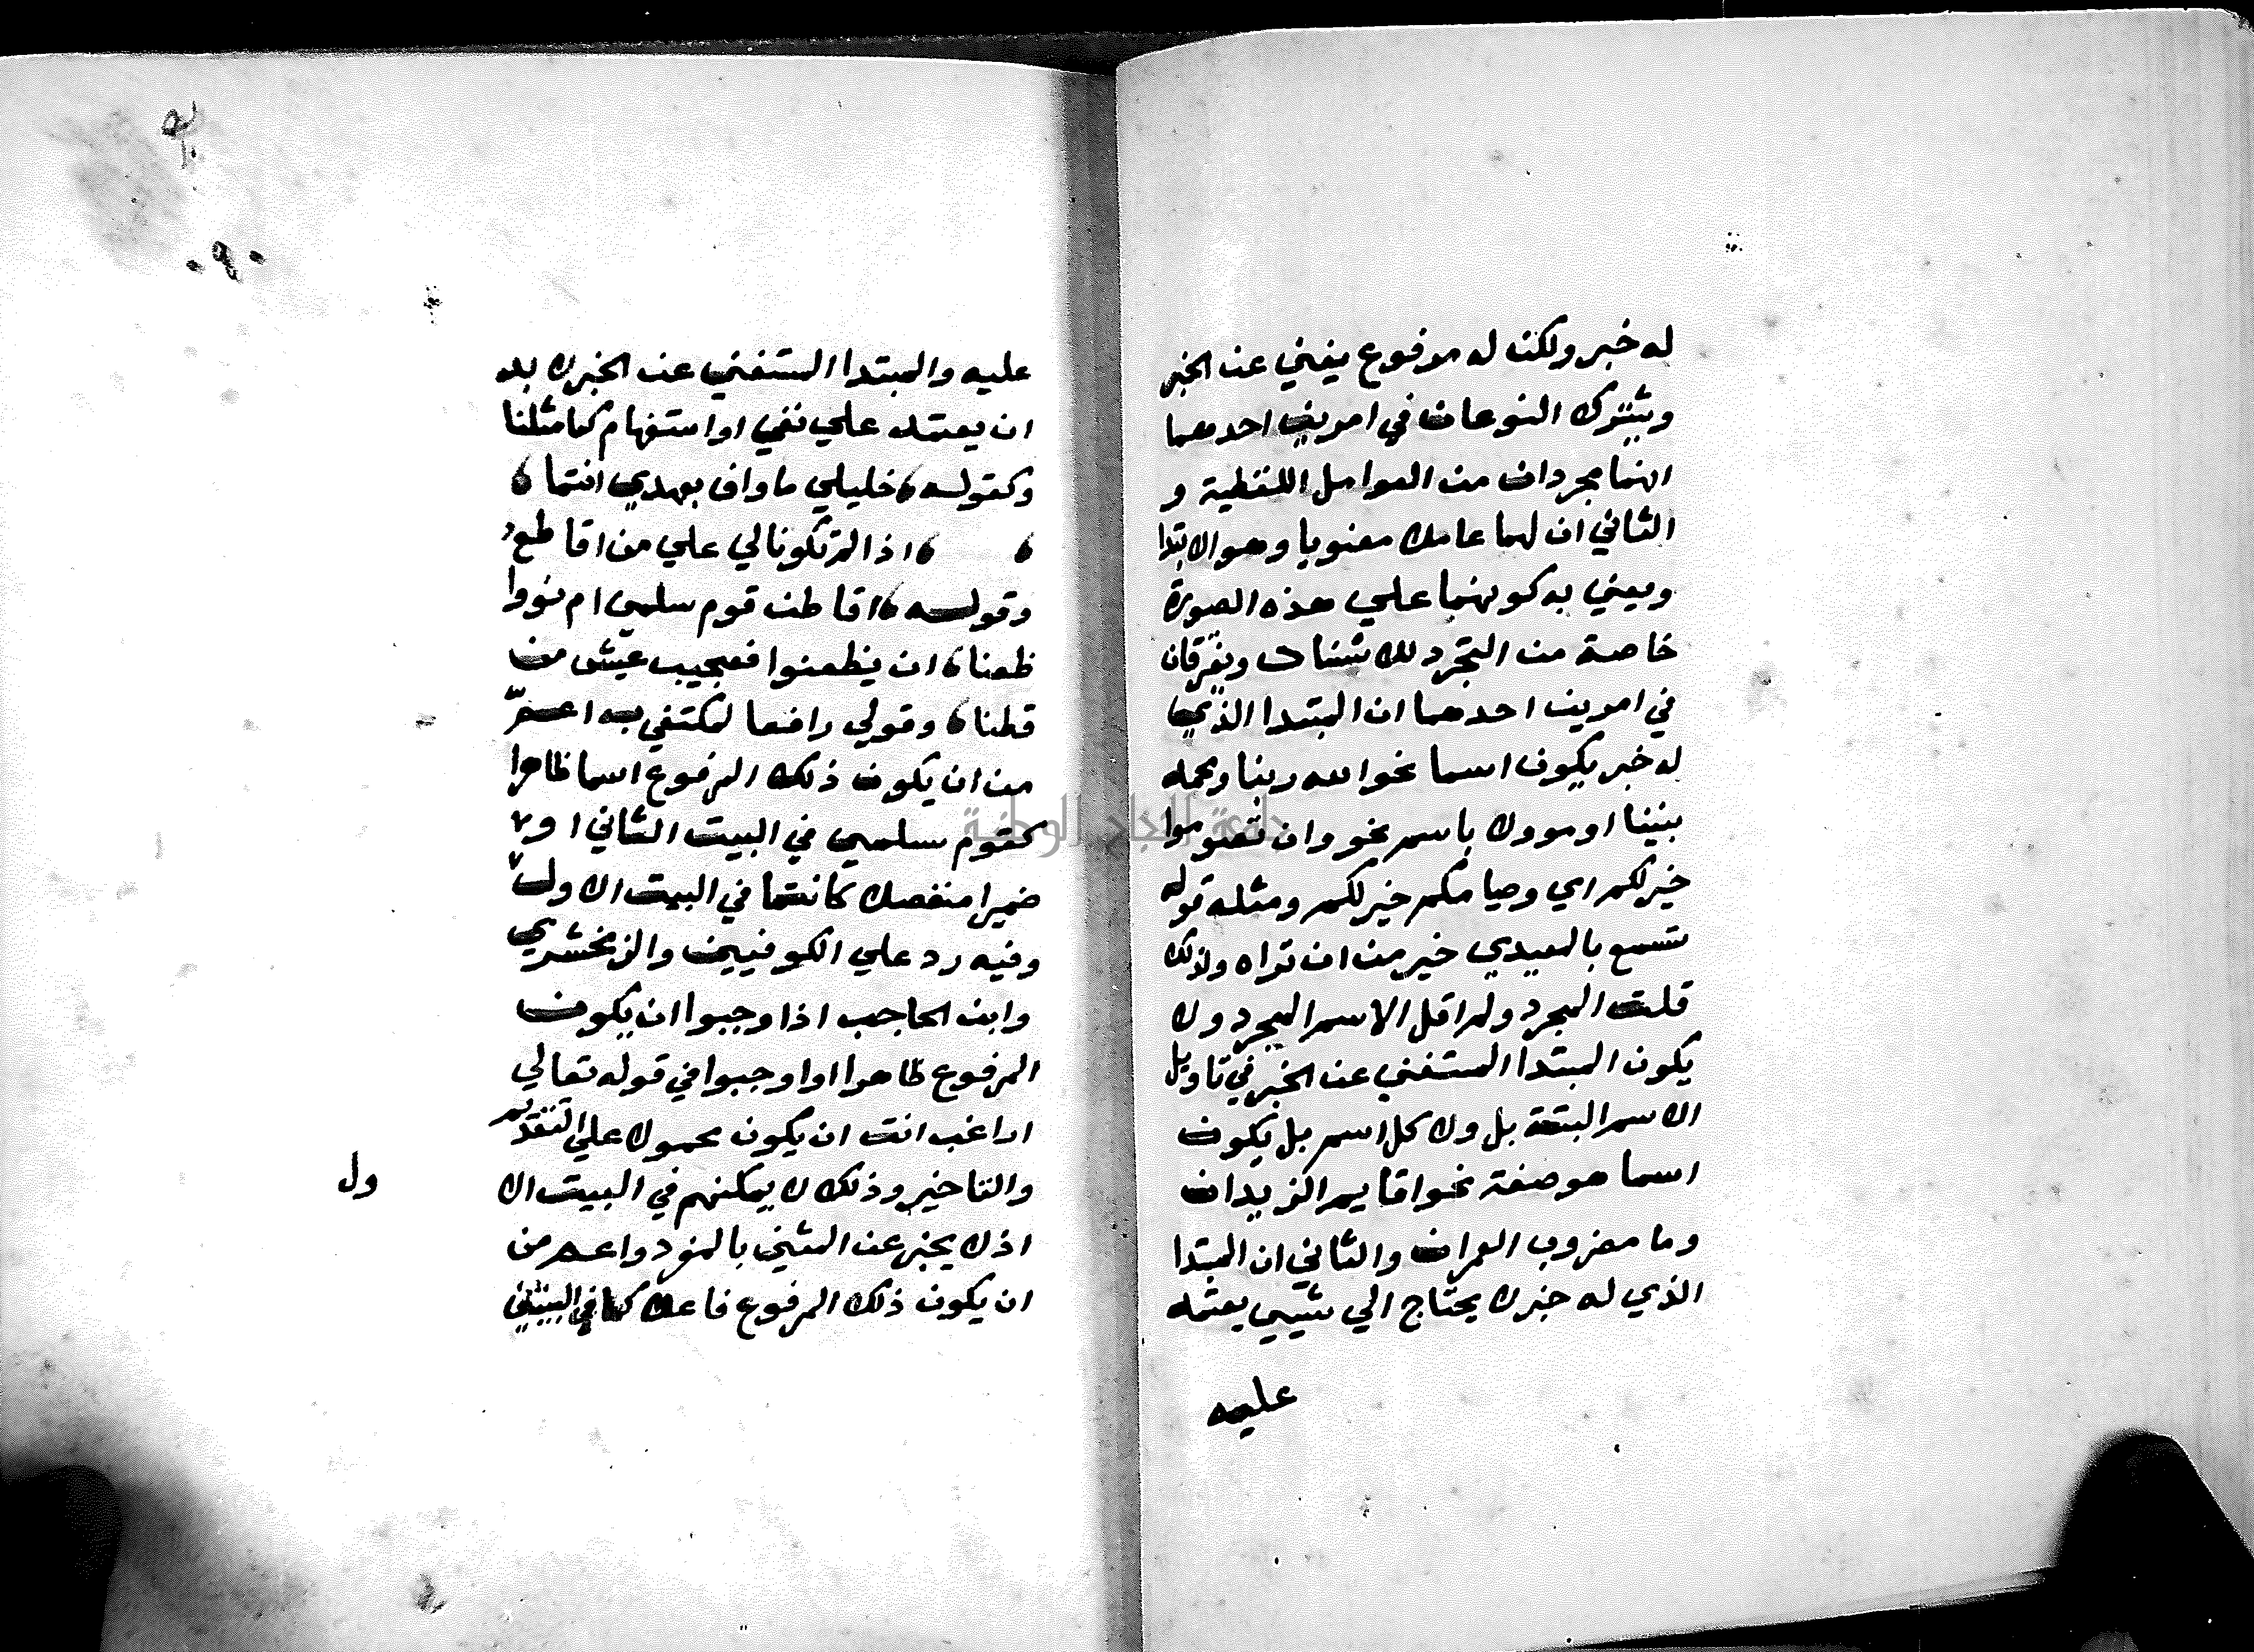 له خبر ولكن له مرفوع يغني عن الخبر
ويشترك النوعان في امرين احدهما
انهما مجردان من العوامل اللفظية و
الثاني ان لهما عاملا معنويا وهو الابتدا
ويعني به كونهما علي هذه الصورة
خاصة من التجرد للاسناد ويفترقان
في امرين احدهما ان المبتدا الذي
له خبر يكون اسما نحو الله ربنا ومحمد
نبينا او موولا باسم نحو وان تصوموا
خير لكم اي وصيامكم خير لكم ومثله قوله
تسمع بالمعيدي خير من ان تراه ولذلك
قلت المجرد ولم اقل الاسم المجرد ولا
يكون المبتدا المستغني عن الخبر في تاويل
الاسم البتة بل ولا كل اسم بل يكون
اسما هو صفة نحو اقايم الزيدان
وما مضروب العمران والثاني ان المبتدا
الذي له خبر لا يحتاج الي شيي يعتمد
عليه
عليه والمبتدا المستغني عن الخبر لا بد
ان يعتمد علي نفي او استفهام كما مثلنا
وكقوله خليلي ما واف بعهدي انتما
اذا لم تكونا لي علي من اقاطع
وقوله اقاطن قوم سلمي ام نووا
ظعنا ان يظعنوا فعجيب عيش من
قطنا وقولي رافعا لمكتفي به اعم
من ان يكون ذلك المرفوع اسما ظاهرا
كقوم سلمي في البيت الثاني او
ضميرا منفصلا كانتما في البيت الاول
وفيه رد علي الكوفيين والزمخشري
وابن الحاجب اذا وجبوا ان يكون
المرفوع ظاهرا اوا وجبوا في قوله تعالي
اراغب انت ان يكون محمولا علي التقديم
والتاخير وذلك لا يمكنهم في البيت الا
ول
اذ لا يخبر عن المثني بالمفرد واعم من
ان يكون ذلك المرفوع فاعلا كما في البيتين
جامعة النجاح الوطنية